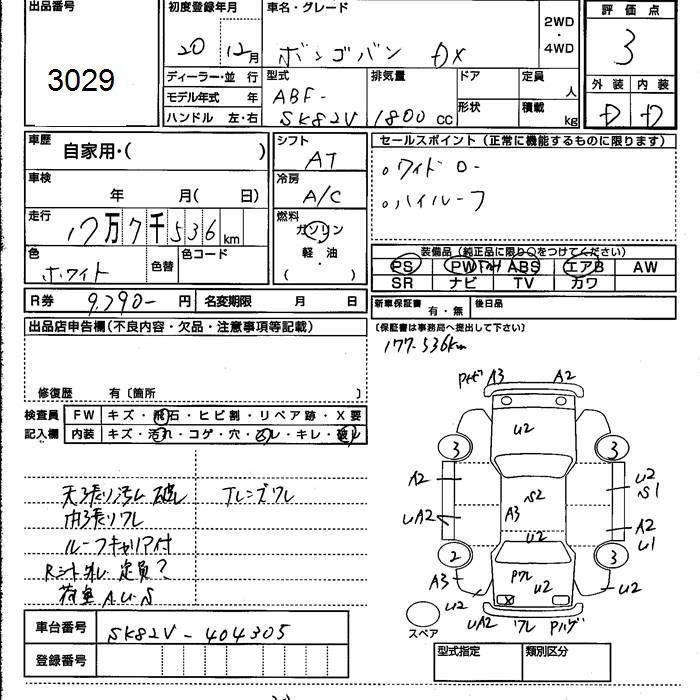 出品番号
3029
初度登録年月
20 12月
車名・グレード
ボンゴバン DX
2WD
・
4WD
評価点
3
外装 内装
D D
ディーラー・並 行
モデル年式 年
ハンドル 左・右
型式
ABF-
SK82V
排気量
1800 cc
ドア
形状
定員
人
積載
kg
車歴
自家用・( )
車検
年 月( 日)
走行
17万7千536km
色
ホワイト
色替
色コード
シフト
AT
冷房
A/C
燃料
ガソリン
・
軽・油
( )
セールスポイント (正常に機能するものに限ります)
。ワイドロー
。ハイルーフ
装備品 (純正品に限り○をつけてください)
PS PW ABS エアB AW
SR ナビ TV カワ
R券 9,790- 円 名変期限 月 日
新車保証書 有・無 後日品
(保証書は事務局へ提出して下さい)
177.536km
出品店申告欄(不良内容・欠品・注意事項等記載)
修復歴 有〔箇所 〕
検査員 FW キズ・飛石・ヒビ割・リペア跡・X要
記入欄 内装 キズ・汚れ・コゲ・穴・スレ・キレ・破レ
天張り汚れ 破レ
内張りワレ
ルーフキャリア付
Rシート外レ 定員?
荷室 A.U.S
TレンズワレA3 A2
U2
3 3
A2 U2
S1
S2
A3
UA2 A2
U1
U2
2 3
A3 Pワレ
U2 U2 U2
UA2 ワレ Pハゲ
スペア
車台番号 SK82V-404305
登録番号
型式指定 類別区分